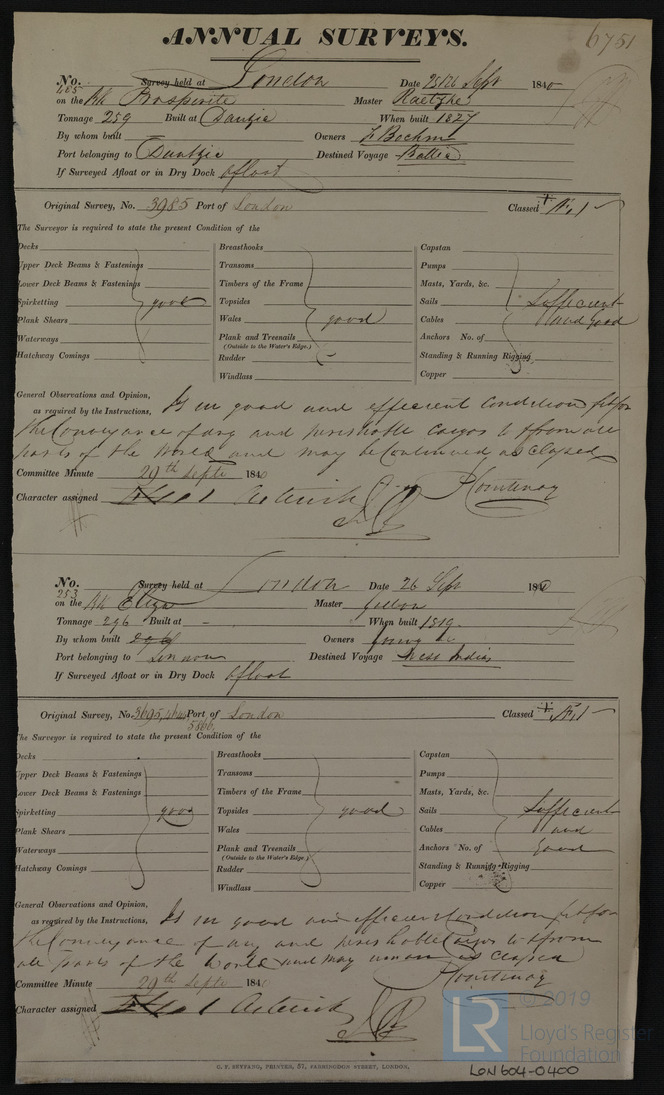 ANNUAL SURVEYS. 6751
No. 465 Survey held at London Date 25/26 Sept 1840
on the Bk Prosperite Master Raetzke
Tonnage 259 Built at Dantzic When built 1827
By whom built Owners F Boehm
Port belonging to Dantzic Destined Voyage Baltic
If Surveyed Afloat or in Dry Dock afloat
Original Survey, No. 3985 Port of London Classed + Æ1
The Surveyor is required to state the present Condition of the
Decks
Upper Deck Beams & Fastenings
Lower Deck Beams & Fastenings
Spirketting good
Plank Shears
Waterways
Hatchway Comings
Breasthooks
Transoms
Timbers of the Frame
Topsides
Wales good
Plank and Treenails
(Outside to the Water's Edge.)
Rudder
Windlass
Capstan
Pumps
Masts, Yards, &c.
Sails Sufficient
Cables and good
Anchors No. of
Standing & Running Rigging
Copper
General Observations and Opinion,
as required by the Instructions, Is in good and efficient condition, fit for
the Conveyance of dry and perishable cargos to & from all
parts of the World and may be Continued as Classed
Committee Minute 29th Septr 1840
Character assigned Æ 1 Asterisk
No. 253 Survey held at London Date 26 Sept 1840
on the Bk Eliza Master
Tonnage 296 Built at - When built 1819
By whom built Owners
Port belonging to London Destined Voyage West Indies
If Surveyed Afloat or in Dry Dock afloat
Original Survey, No. 5695, Port of London Classed + Æ1
5866
The Surveyor is required to state the present Condition of the
Decks
Upper Deck Beams & Fastenings
Lower Deck Beams & Fastenings
Spirketting good
Plank Shears
Waterways
Hatchway Comings
Breasthooks
Transoms
Timbers of the Frame
Topsides good
Wales
Plank and Treenails
(Outside to the Water's Edge.)
Rudder
Windlass
Capstan
Pumps
Masts, Yards, &c.
Sails Sufficient
Cables and
Anchors No. of good
Standing & Running Rigging
Copper
General Observations and Opinion,
as required by the Instructions, Is in good and efficient Condition fit for
the Conveyance of dry and perishable Cargos to & from
all parts of the World and may remain as Classed
Committee Minute 29th Septr 1840
Character assigned Æ 1 Asterisk
C. F. SEYFANG, PRINTER, 57, FARRINGDON STREET, LONDON,
LR © 2019
Lloyd's Register
Foundation
LON604-0400